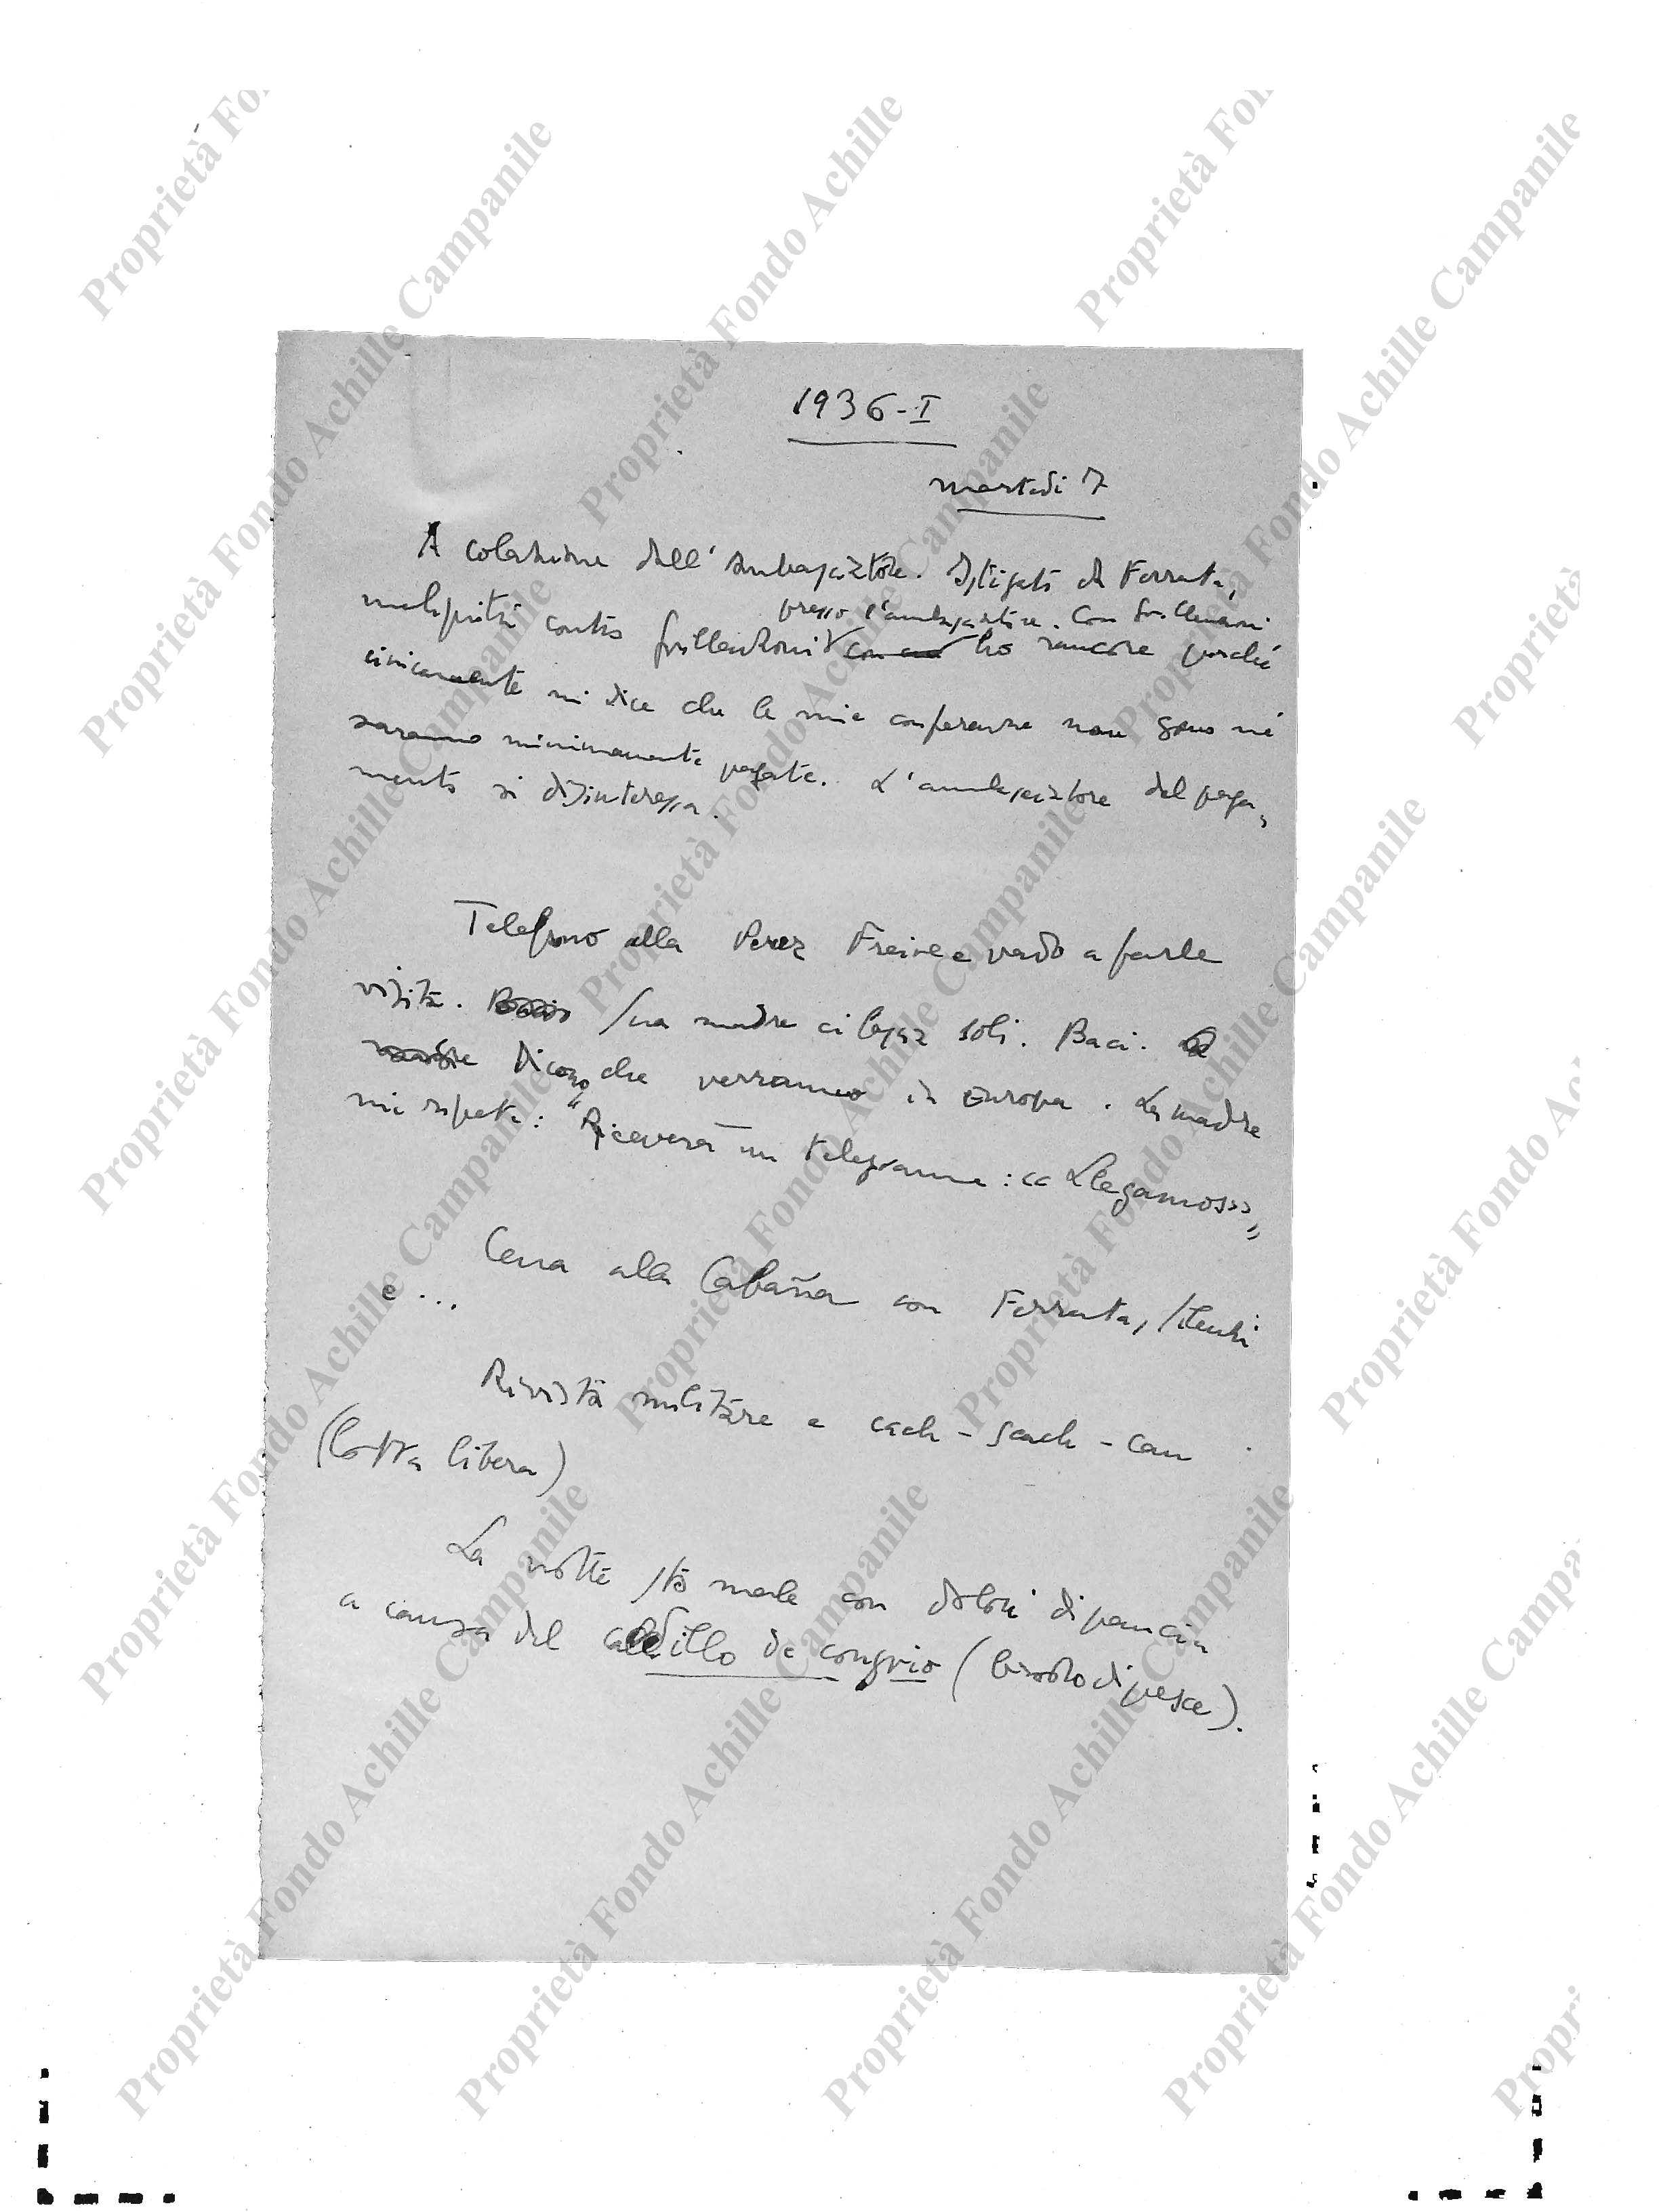 1936-I
martedì 7
A colazione dall'ambasciatore. Istigato da Ferrata,
presso l'ambasciatore. Con
malignità contro ho rancore perché
cinicamente mi dice che le mie conferenze non sono né
saranno minimamente pagate. L'ambasciatore del paga-
mento si disinteressa.
Telefono alla Perez Freire e vado a farle
visita. Sua madre ci lascia soli. Baci.
Dicono che verranno in Europa. La madre
mi ripete: "Riceverà un telegramma: «Llegamos»"
Cena alla Cabaña con Ferrata,
e ...
Rivista militare e cach-scach-can
(lotta libera)
La notte sto male con dolori di pancia
a causa del caldillo de congrio (brodo di pesce).
Proprietà Fondo Achille Campanile